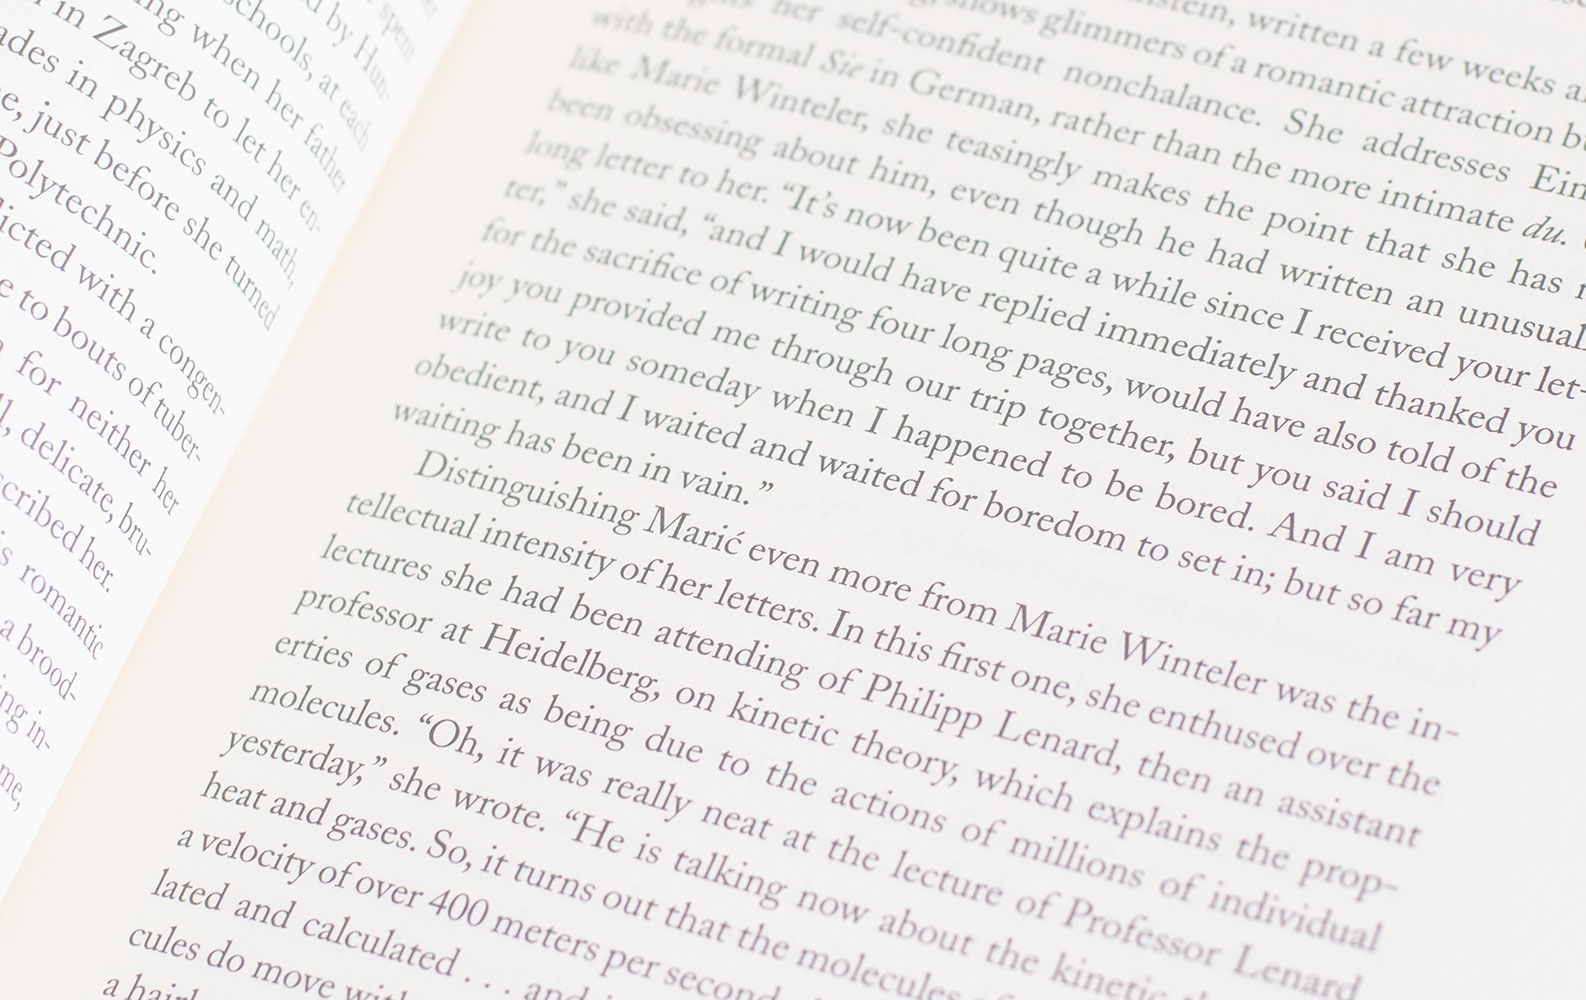 spent
d by Hun-
schools, at each
ng when her father
in Zagreb to let her en-
ades in physics and math,
e, just before she turned
Polytechnic.
licted with a congen-
e to bouts of tuber-
for neither her
l, delicate, bru-
scribed her.
s romantic
a brood-
ing in-
me,
nstein, written a few weeks a
shows glimmers of a romantic attraction bu
her self-confident nonchalance. She addresses Ein
with the formal Sie in German, rather than the more intimate du.
like Marie Winteler, she teasingly makes the point that she has
been obsessing about him, even though he had written an unusual
long letter to her. “It’s now been quite a while since I received your let-
ter,” she said, “and I would have replied immediately and thanked you
for the sacrifice of writing four long pages, would have also told of the
joy you provided me through our trip together, but you said I should
write to you someday when I happened to be bored. And I am very
obedient, and I waited and waited for boredom to set in; but so far my
waiting has been in vain.”
Distinguishing Marić even more from Marie Winteler was the in-
tellectual intensity of her letters. In this first one, she enthused over the
lectures she had been attending of Philipp Lenard, then an assistant
professor at Heidelberg, on kinetic theory, which explains the prop-
erties of gases as being due to the actions of millions of individual
molecules. “Oh, it was really neat at the lecture of Professor Lenard
yesterday,” she wrote. “He is talking now about the kinetic
heat and gases. So, it turns out that the molecules
a velocity of over 400 meters per second
lated and calculated . . . and
cules do move with
a hair